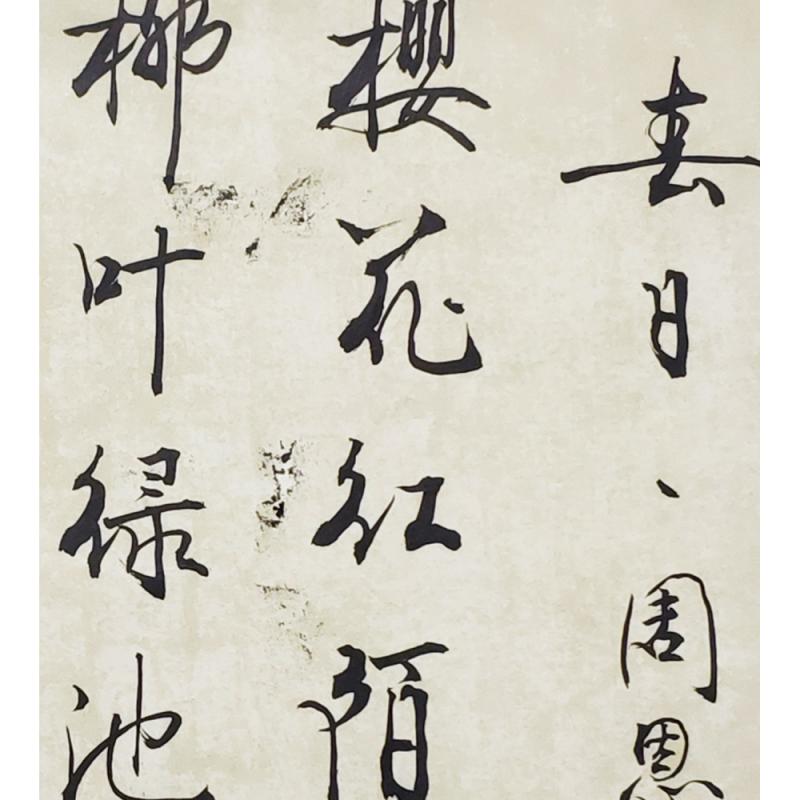 春日、周恩
樱花红陌
柳叶绿池